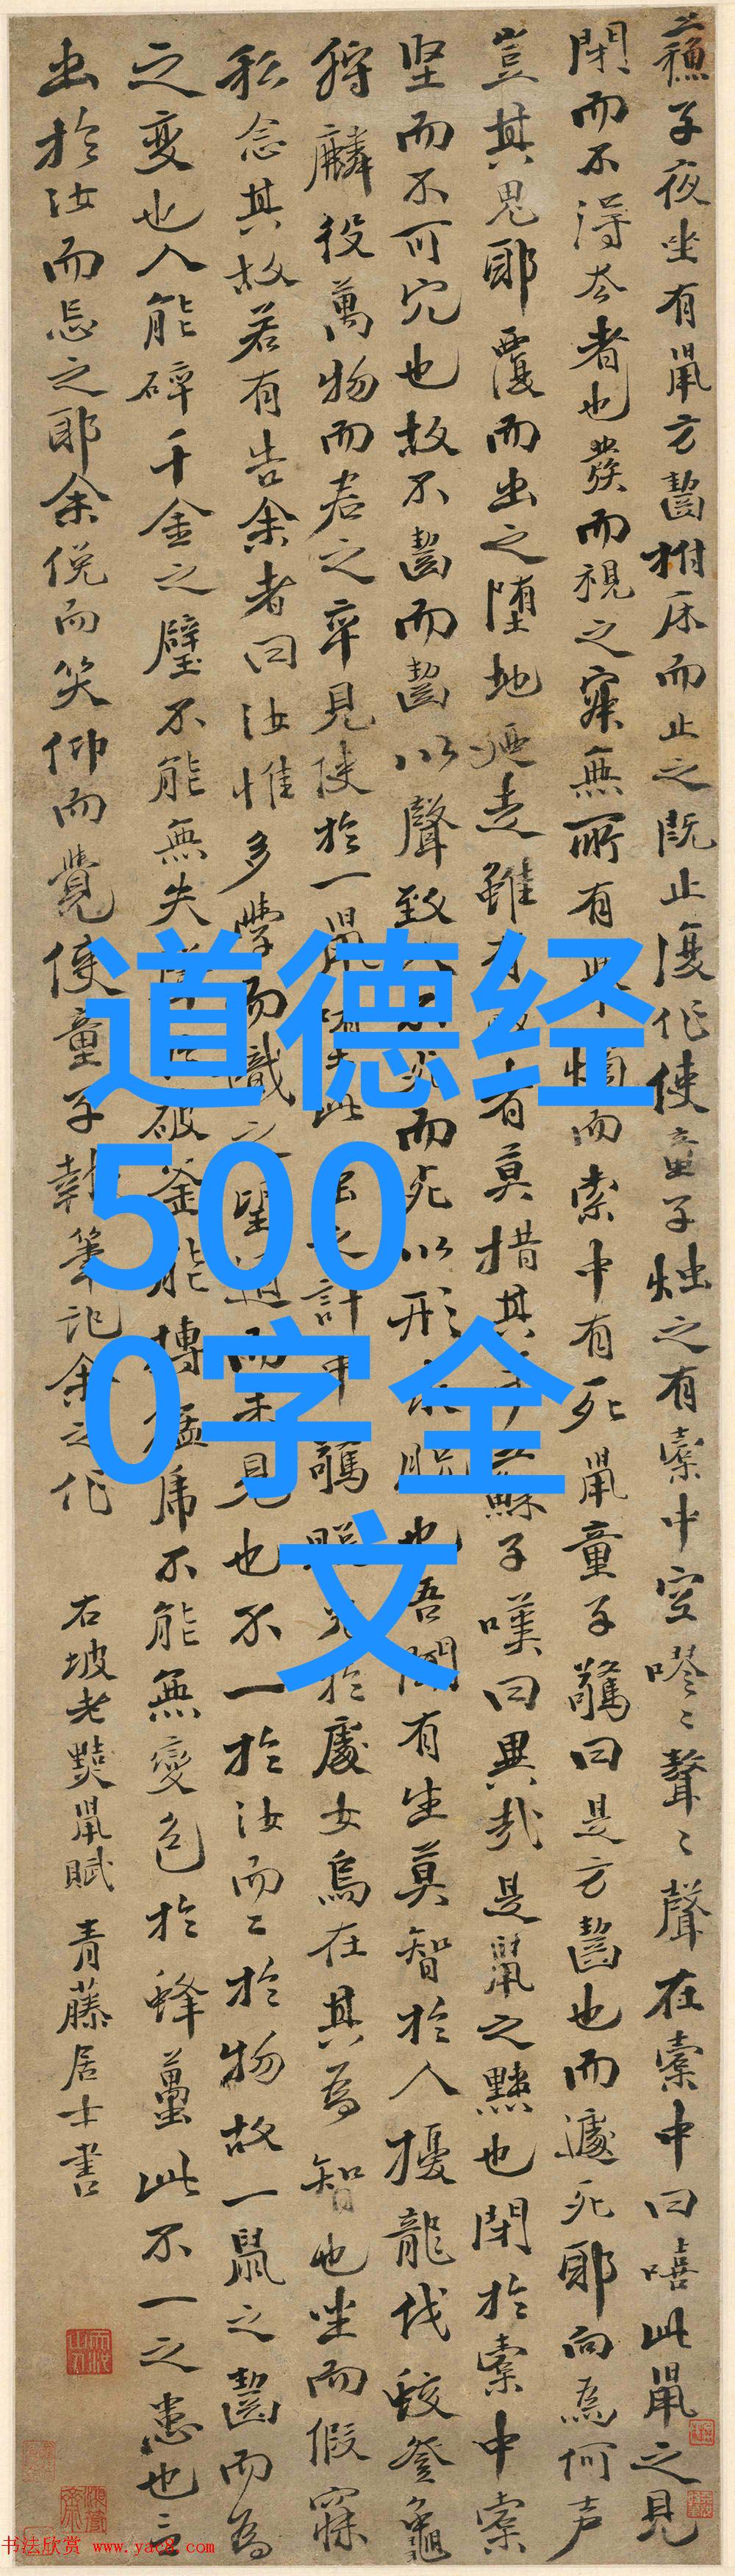 蘇子夜坐有鼠方齧拊床而止之既止復作使童子燭之有橐中空嘐〻聱〻聲在橐中曰嘻此鼠之見
閉而不得去者也發而視之寂無所有舉燭而索中有死鼠童子驚曰是方齧也而遽死耶向為何声
豈其鬼耶覆而出之墮地廼走雖有敏者莫措其手蘇子嘆曰異哉是鼠之黠也閉於橐中橐
坚而不可穴也故不齧而齧以聲致人不死而死以形求脱也吾聞有生莫智於人擾龍伐蛟登龜
狩麟役萬物而君之卒見使於一鼠墮此蟲之計中驚脱兔於處女烏在其為智也坐而假寐
私念其故若有告余者曰汝惟多學而識之望道而未見也不一於汝而二於物故一鼠之齧而為
之變也人能碎千金之璧不能無失聲於破釜能搏猛虎不能無變色於蜂蠆此不一之患也言
出於汝而忘之耶余俛而笑仰而覺使童子執筆記余之作
右坡老黠鼠賦 青藤居士書
道德经
500
0字全
文
书法欣赏 www.yac8.com